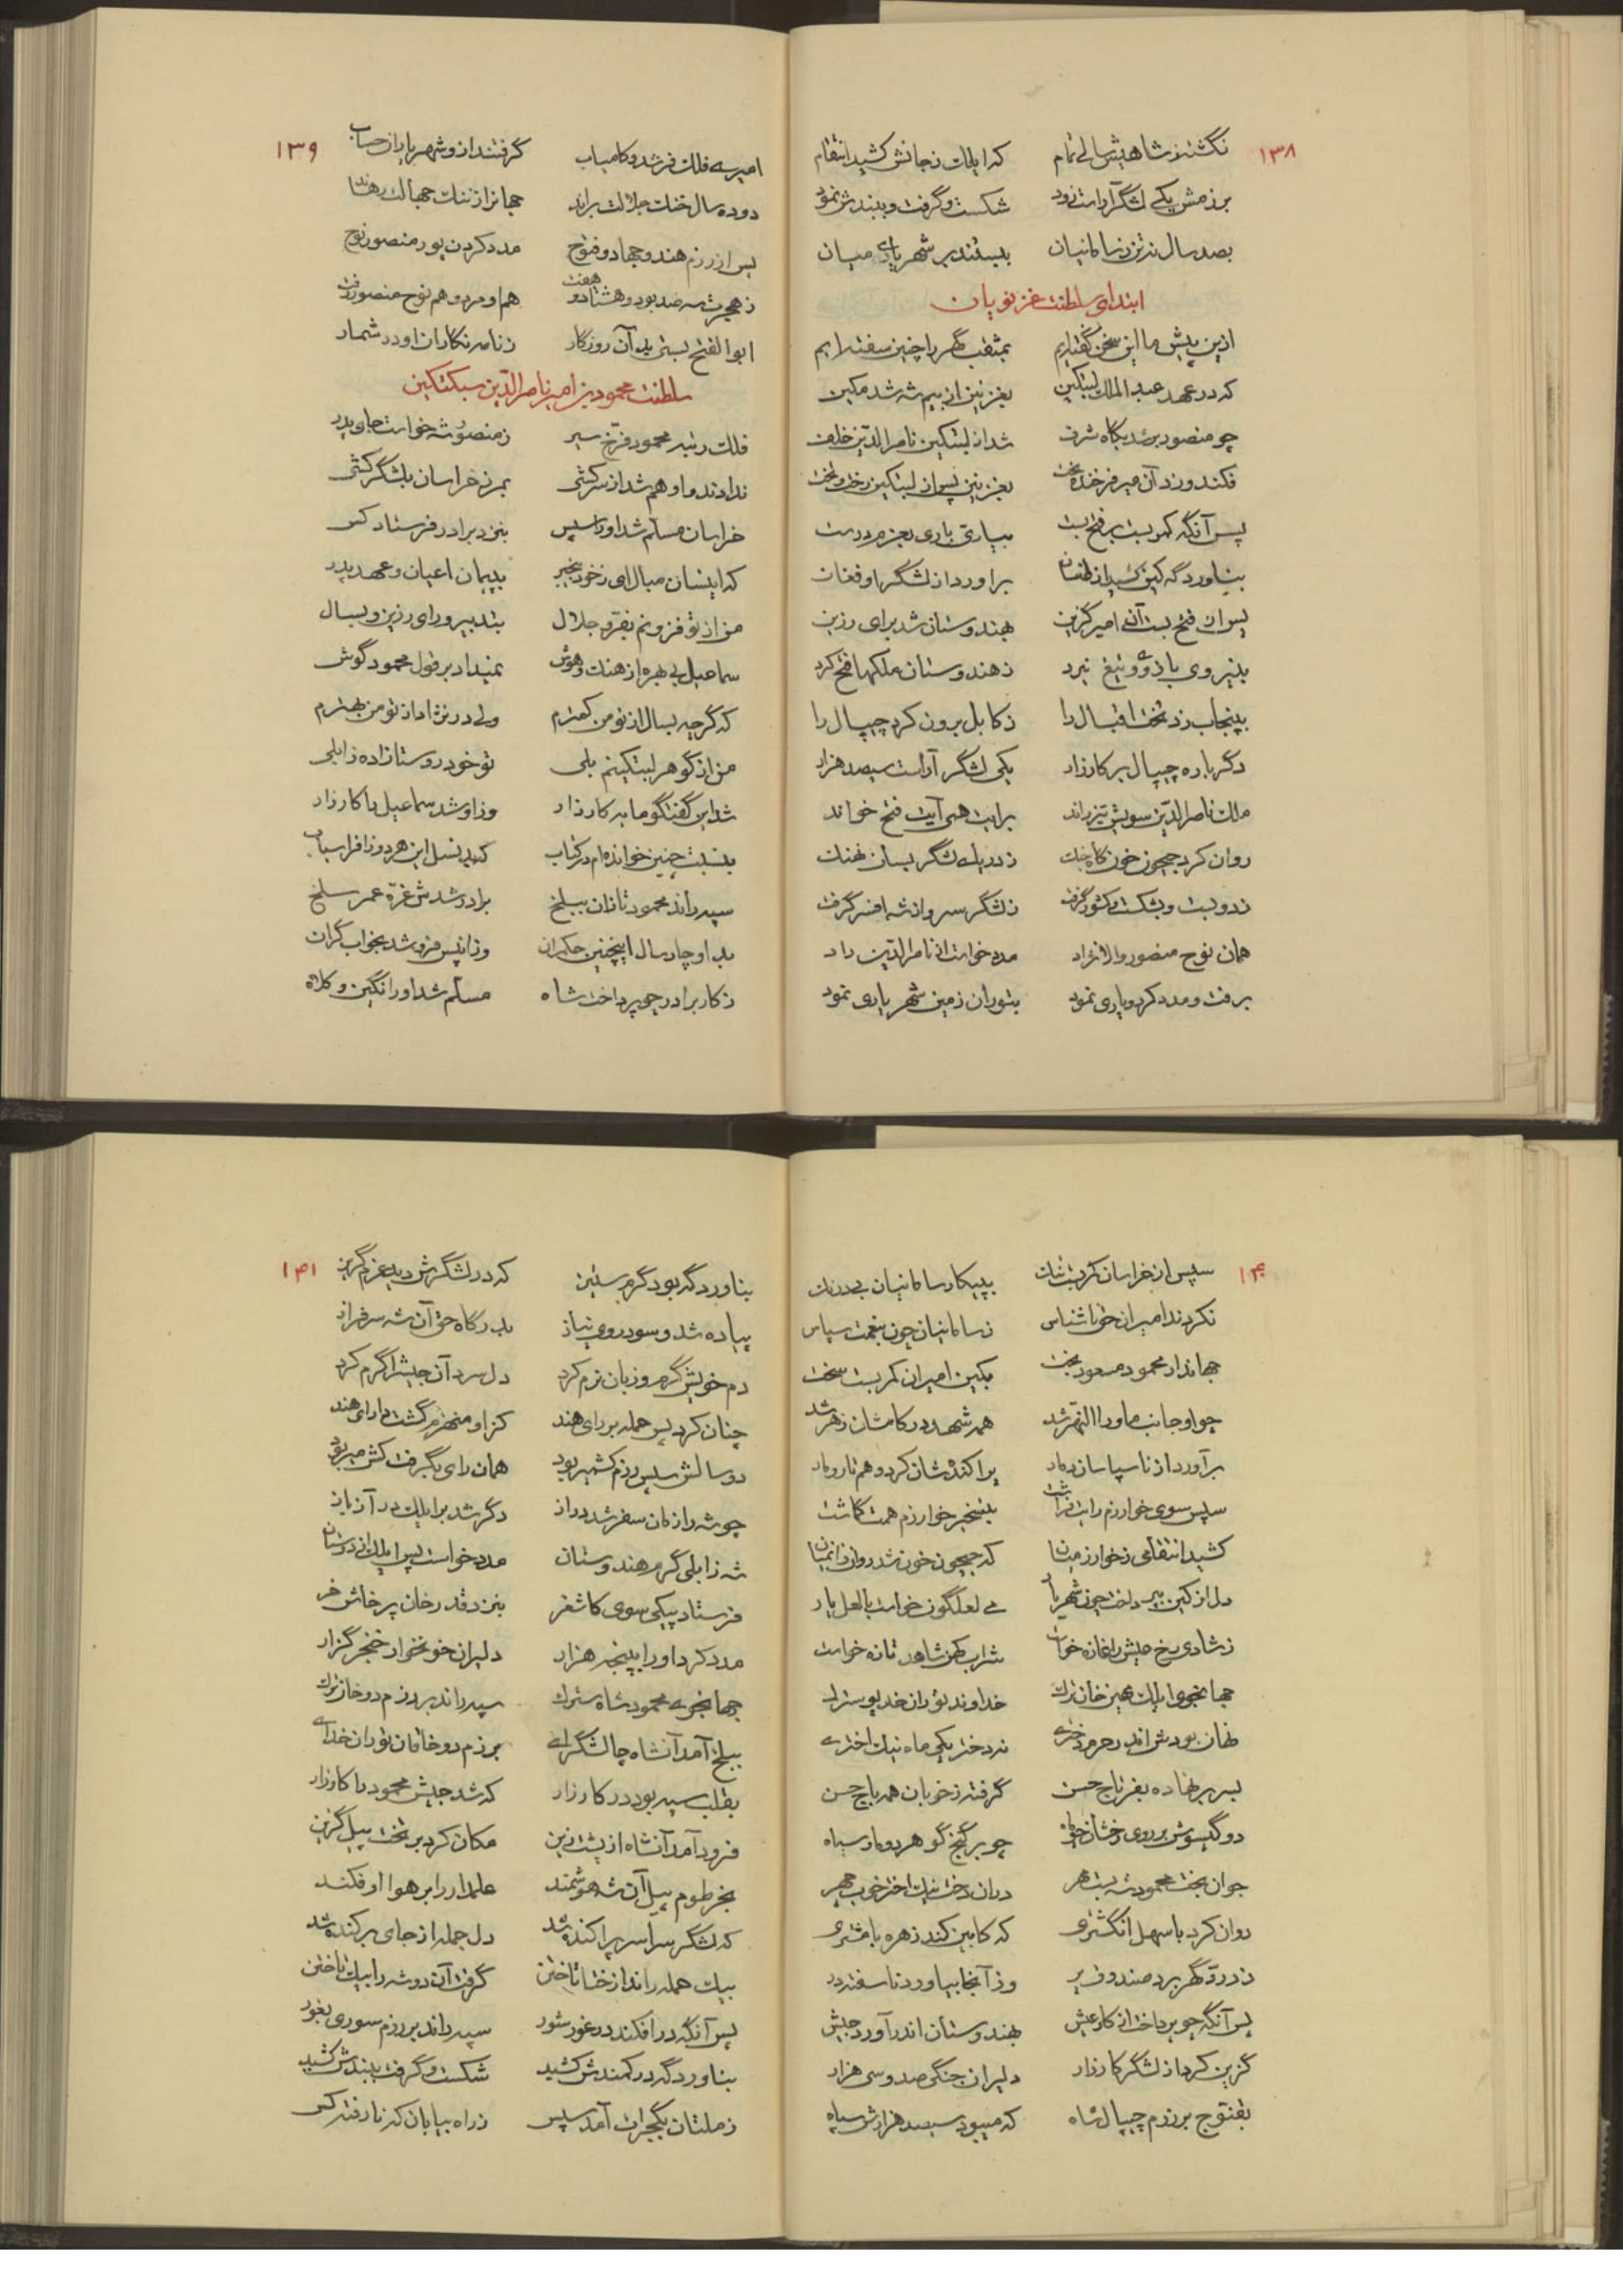 ۱۳۸
نگشته ز شاهیش سالی تمام که ایلک ز جانش کشید انتقام
برزمش یکی لشگر آراست زود شکست و گرفت و ببندش نمود
بصد سال نیز ز سامانیان ببستند بر شهریاری میان
ابتدای سلطنت غزنویان
ازین پیش ما این سخن گفته‌ایم بمثقب گهر را چنین سفته‌ایم
که در عهد عبدالملک لپتکین بغزنین از بیم شه شد مکین
چو منصور بر شد بگاه شرف شد از لپتکین ناصرالدین خلف
فکندورزد آن میر فرخنده بخت بغزنین پس از لپتکین رخت و تخت
پس آنگه کمر بست بر فتح بست بیاری باری بعزم درست
بناوردگه کین کشید از طغان برآورد از لشگر او فغان
پس از فتح بست آن امیر گزین بهندوستان شد برای رزین
بنیروی بازو و تیغ نبرد ز هندوستان ملکها فتح کرد
بپنجاب زد تخت اقبال را ز کابل برون کرد چیپال را
دگرباره چیپال بر کارزار یکی لشگر آراست سیصد هزار
ملک ناصرالدین سویش تیز راند برایت همی آیت فتح خواند
روان کرد جیحون خون گاه جنگ ز دریای لشگر بسان نهنگ
ز دو بست و بشکست و کشور گرفت ز لشگر سر و از شه افسر گرفت
همان نوح منصور والانژاد مدد خواست از ناصرالدین راد
برفت و مدد کرد و یاری نمود بتوران زمین شهریاری نمود
۱۳۹
امیری فلک فر شد و کامیاب گرفتند ازو شهریاران حساب
دو ده سال خنگ جلالت براند جهانرا ز ننگ جهالت رهاند
پس از رزم هند و جهاد و فتوح مدد کردن پور منصور نوح
ز هجرت سه صد بود و هشتاد و هفت هم او مرد و هم نوح منصور رفت
ابوالفتح بستی بد آن روزگار ز نامه نگاران او در شمار
سلطنت محمود بن امیر ناصرالدین سبکتکین
فلک رتبه محمود فرخ سیر ز منصور شه خواست جای پدر
ندادند و او هم شد از سرکشی بمرز خراسان بلشگر کشی
خراسان مسلم شد او را سپس بنزد برادر فرستاد کس
که اینسان مبال ای ز خود بیخبر بپیمان اعیان و عهد پدر
من از تو فزونم بفر و جلال بتدبیر و رای رزین و بسال
سماعیل بی بهره از هنگ و هوش نمیداد بر قول محمود گوش
که گرچه بسال از تو من کمترم ولی در نژاد از تو من بهترم
من از گوهر لپتکینم بلی تو خود روستازاده زابلی
شد این گفتگو مایه کارزار وزاو شد سماعیل با کارزار
بنسبت چنین خوانده‌ام در کتاب که بد نسل این هر دو زافراسیاب
سپه راند محمود تازان ببلخ برادر شدش غره عمر سلخ
بد او چار سال اینچنین حکمران وزانپس فرو شد بخواب گران
ز کار برادر چو پرداخت شاه مسلم شد او را نگین و کلاه
۱۴۰
سپس از خراسان کمر بست تنگ بپیکار سامانیان بیدرنگ
نکردند امیران حق ناشناس ز سامانیان چون بنعمت سپاس
جهاندار محمود مسعود بخت بکین امیران کمر بست سخت
چو او جانب ماوراءالنهر شد همه شهد در کامشان زهر شد
برآورد از ناسپاسان دمار پراکنده‌شان کرد و هم تار و مار
سپس سوی خوارزم رایت فراشت بتسخیر خوارزم همت گماشت
کشید انتقامی ز خوارزمیان که جیحون خون شد روان زانمیان
دل از کین بپرداخت چون شهریار می لعلگون خواست با لعل یار
ز شادی رخ عیش را غازه خواست شراب کهن شاهد تازه خواست
جهانجوی ایلک مهین خان ترک خداوند توران خدیو سترک
نهان بودش اندر حرم دختری نه دختر یکی ماه نیک اختری
بسر بر نهاده بفر تاج حسن گرفته ز خوبان همه باج حسن
دو گیسوش بر روی رخشان چو ماه چو بر گنج گوهر دو مار سیاه
جوان بخت محمود شه بست مهر بدان دخت نیک اختر خوب چهر
روان کرد با سهل انگشتری که کابین کند زهره با مشتری
ز در و گهر برد صندوق پر وز آنجا بیاورد ناسفته در
پس آنگه چو پرداخت از کار عیش بهندوستان اندر آورد جیش
گزین کرد از لشگر کارزار دلیران جنگی صد و سی هزار
بقنوج برزم چیپال شاه که میبود سیصد هزارش سپاه
۱۴۱
بناوردگه بود گرم ستیز که در لشگرش دید عزم گریز
پیاده شد و سود روی نیاز بدرگاه حق آن شه سرفراز
دم خویش گرم و زبان نرم کرد دل سرد آن جیش را گرم کرد
چنان کرد پس حمله بر رای هند کز او منهزم گشت دارای هند
دو سالش سپس رزم کشمیر بود همان رای بگرفت کش میر بود
چو شه را زمان سفر شد دراز دگر شد بر ایلک در آز باز
شه زابلی گرم هندوستان مدد خواست پس ایلک از دوستان
فرستاد پیکی سوی کاشغر بنزد قدرخان پرخاش خر
مدد کرد او را بپنجه هزار دلیران خونخوار خنجرگزار
جهانجوی محمود شاه سترک سپه راند بر رزم دو خان ترک
ببلخ آمد آنشاه چالشگرای برزم دو خاقان توران خدای
بقلب سپه بود در کارزار که شد جیش محمود را کار زار
فرود آمد آنشاه از پشت زین مکان کرد بر تخت پیل گزین
بخرطوم پیل آن شه هوشمند علمدار را بر هوا اوفکند
که لشگر سراسر پراکنده شد دل جمله از جای برکنده شد
بیک حمله راند از ختا تا ختن گرفت آن دو شه را بیک تاختن
پس آنگه درافکند در غور شور سپه راند بر رزم سوری بغور
بناوردگه در کمندش کشید شکست و گرفت ببندش کشید
ز ملتان بگجرات آمد سپس ز راه بیابان که نارفته کس